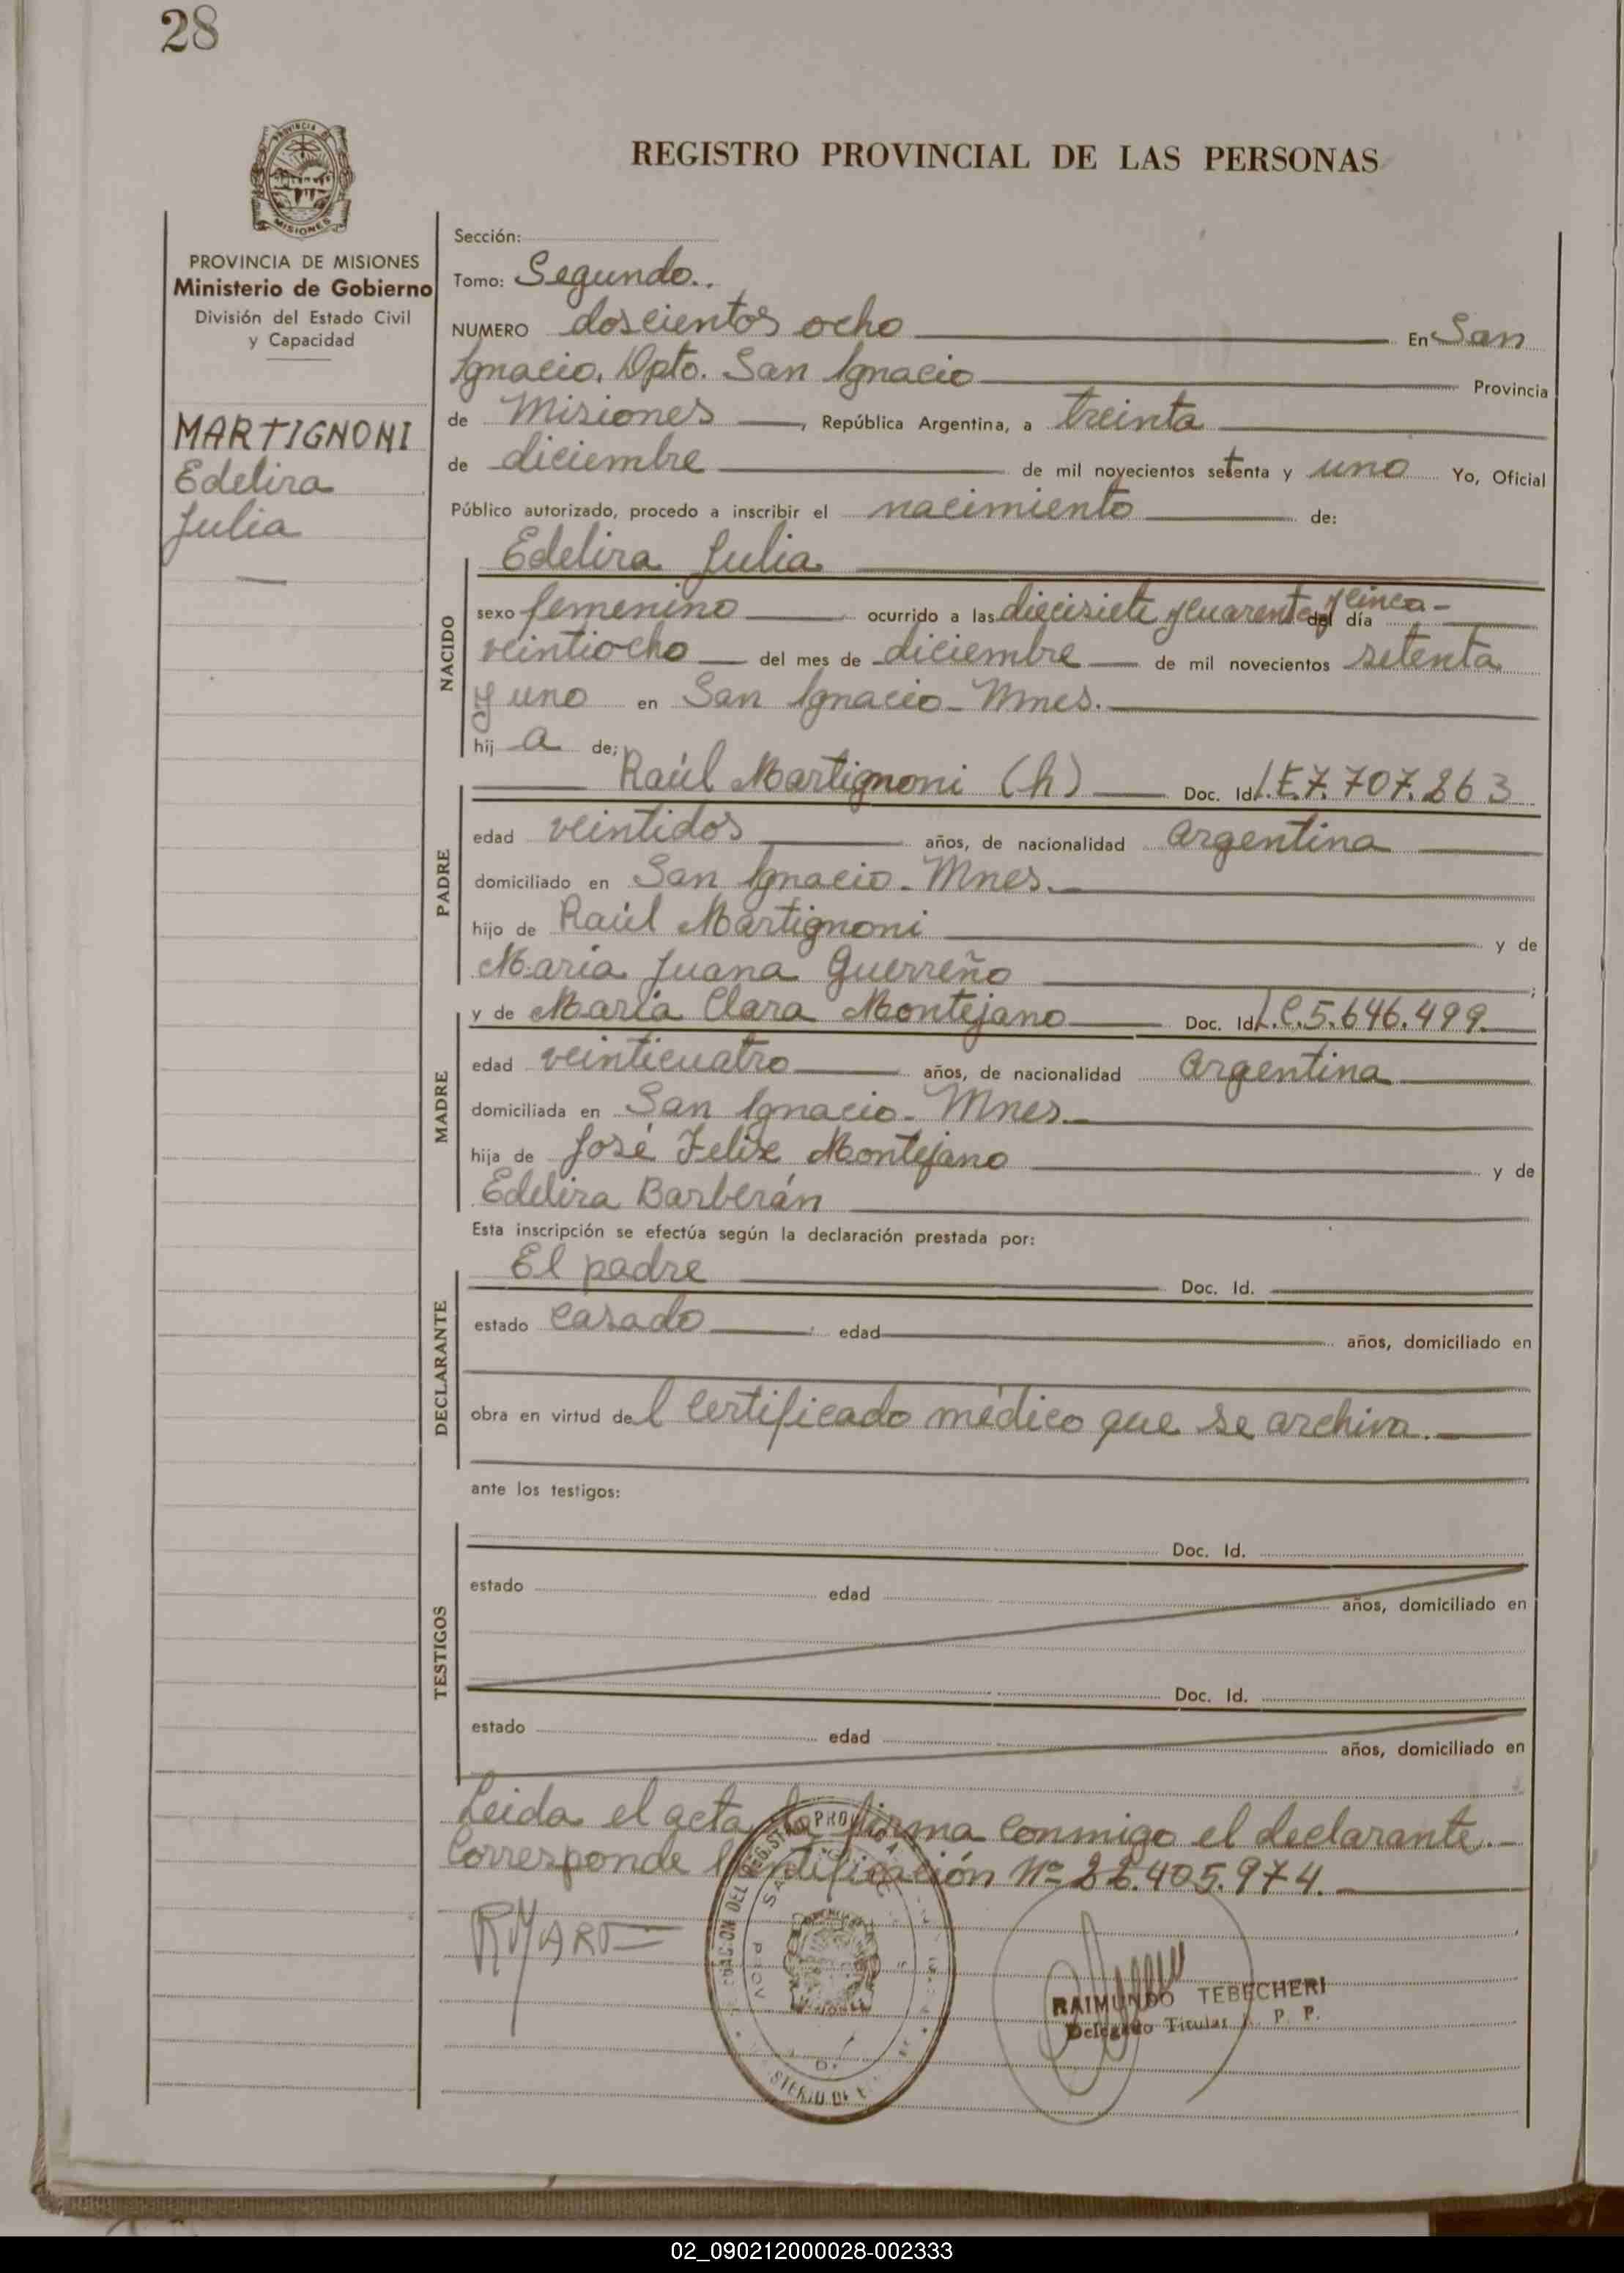 28
REGISTRO PROVINCIAL DE LAS PERSONAS
PROVINCIA DE MISIONES
Ministerio de Gobierno
División del Estado Civil
y Capacidad
MARTIGNONI
Edelira
Julia
Sección:
Tomo: Segundo..
NUMERO doscientos ocho En San
Ignacio. Dpto. San Ignacio Provincia
de Misiones, República Argentina, a treinta
de diciembre de mil novecientos setenta y uno Yo, Oficial
Público autorizado, procedo a inscribir el nacimiento de:
Edelira Julia
NACIDO
sexo femenino ocurrido a las diecisiete y cuarenta y cinco - del día
veintiocho del mes de diciembre de mil novecientos setenta
y uno en San Ignacio - Mnes.
hij a de:
PADRE
Raúl Martignoni (h) Doc. Id. L.E.7.707.863
edad veintidos años, de nacionalidad argentina
domiciliado en San Ignacio - Mnes.
hijo de Raúl Martignoni y de
María Juana Guerreño ;
MADRE
y de María Clara Montejano Doc. Id. L.C.5.646.499
edad veinticuatro años, de nacionalidad argentina
domiciliada en San Ignacio - Mnes.
hija de José Felix Montejano y de
Edelira Barberán
Esta inscripción se efectúa según la declaración prestada por:
DECLARANTE
El padre Doc. Id.
estado casado edad años, domiciliado en
obra en virtud del certificado médico que se archiva.
ante los testigos:
TESTIGOS
Doc. Id.
estado edad años, domiciliado en
Doc. Id.
estado edad años, domiciliado en
Leida el acta, la firma conmigo el declarante.
Corresponde Identificación Nº 22.405.974.
RAIMUNDO TEBECHERI
Delegado Titular P. P.
02_090212000028-002333